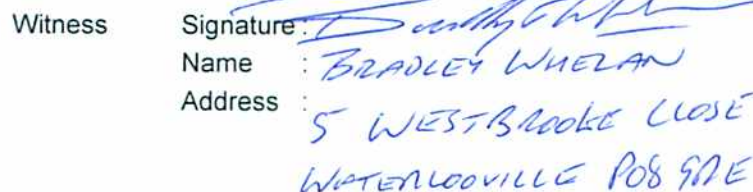 Witness Signature :
Name : BRADLEY WHELAN
Address :
5 WESTBROOKE CLOSE
WATERLOOVILLE PO8